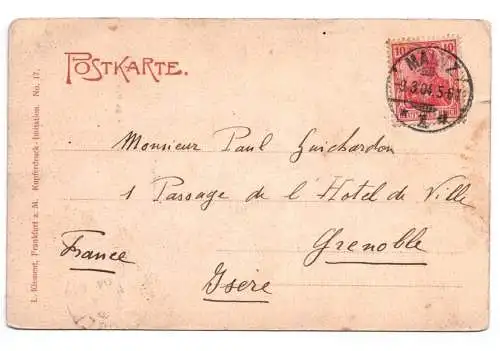 POSTKARTE.
10 10
MAINZ
9.3.04.5-6
* 1. *
Monsieur Paul Guichardon
1 Passage de l'Hotel de Ville
Grenoble
France
Isère
L. Klement, Frankfurt a. M. Kupferdruck-Imitation. No. 17.